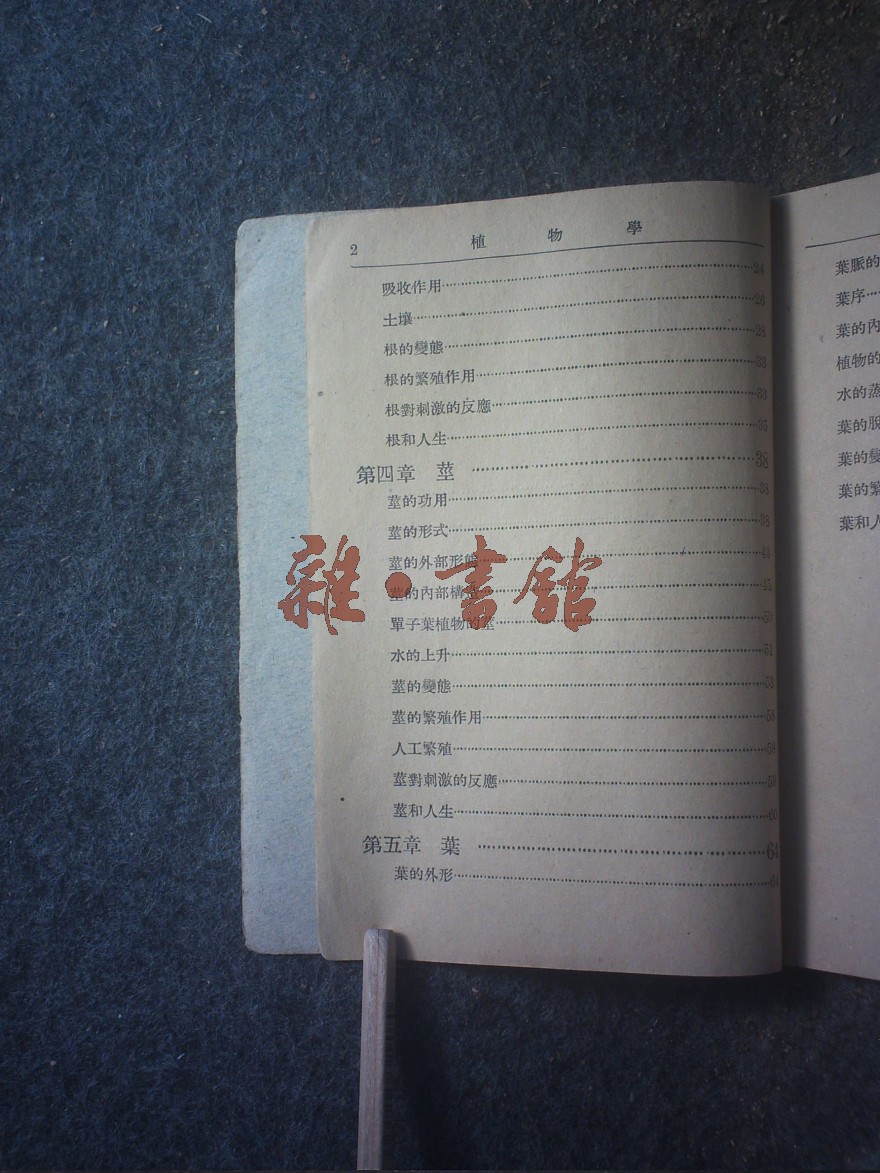 2 植物學
吸收作用……24
土壤……26
根的變態……28
根的繁殖作用……33
根對刺激的反應……33
根和人生……35
第四章 莖……38
莖的功用……38
莖的形式……38
莖的外部形態……43
莖的內部構造……45
單子葉植物的莖……50
水的上升……51
莖的變態……53
莖的繁殖作用……58
人工繁殖……58
莖對刺激的反應……59
莖和人生……60
第五章 葉……64
葉的外形……64
雜·書館
葉脈的
葉序……
葉的內
植物的
水的蒸
葉的脫
葉的變
葉的繁
葉和人